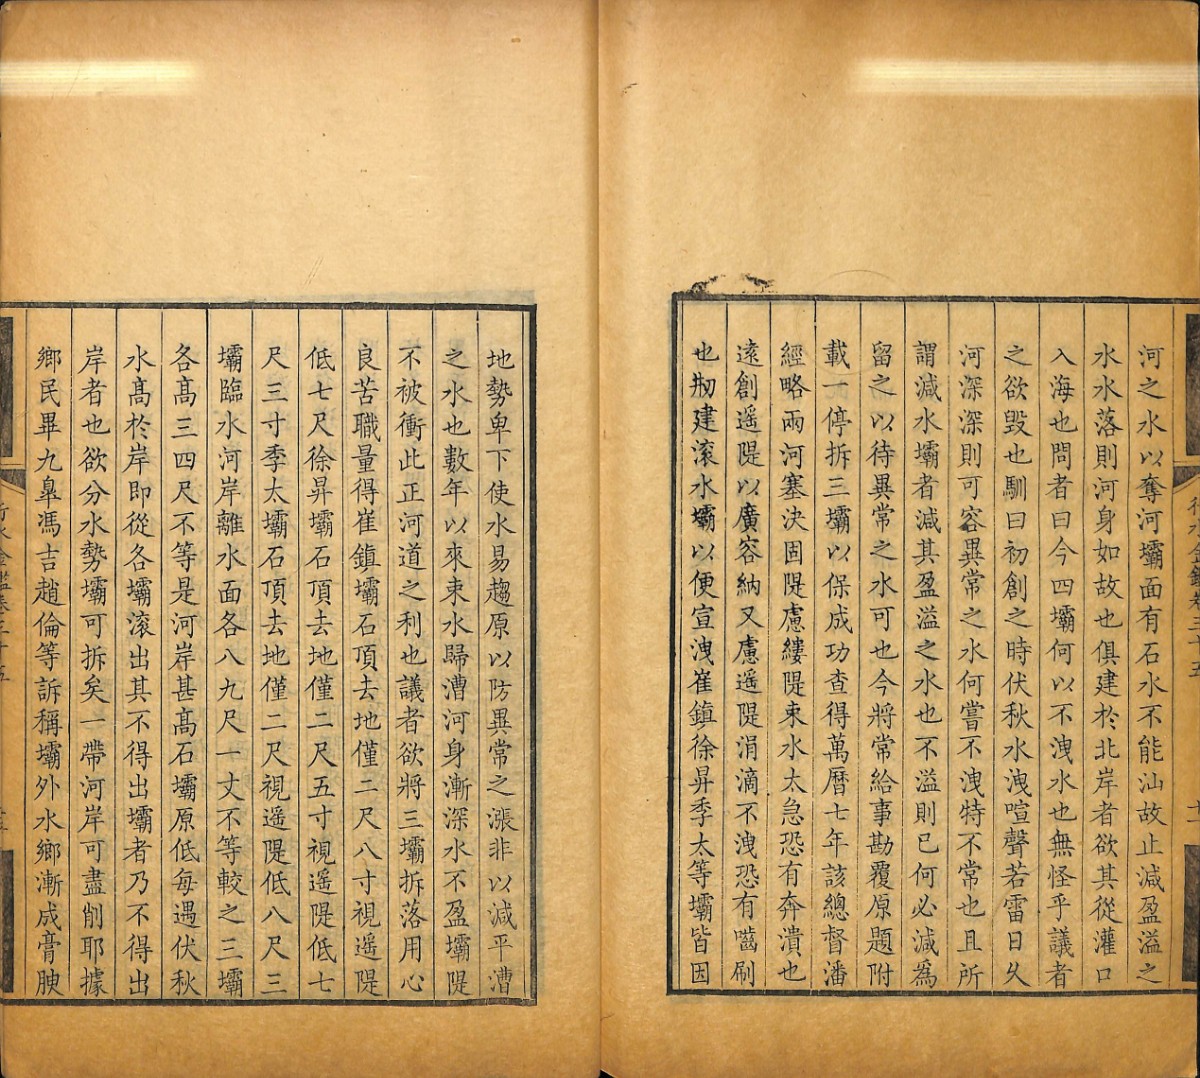 河之水以奪河壩面有石水不能汕故止減盈溢之
水水落則河身如故也俱建於北岸者欲其從灌口
入海也問者曰今四壩何以不洩水也無怪乎議者
之欲毀也馴曰初創之時伏秋水洩喧聲若雷日久
河深深則可容異常之水何嘗不洩特不常也且所
謂減水壩者減其盈溢之水也不溢則已何必減爲
留之以待異常之水可也今將常給事勘覆原題附
載一停拆三壩以保成功查得萬曆七年該總督潘
經略兩河塞決固隄慮縷隄束水太急恐有奔潰也
遠創遥隄以廣容納又慮遥隄涓滴不洩恐有嚙刷
也剏建滚水壩以便宣洩崔鎮徐昇季太等壩皆因
地勢卑下使水易趨原以防異常之漲非以減平漕
之水也數年以來束水歸漕河身漸深水不盈壩隄
不被衝此正河道之利也議者欲將三壩拆落用心
良苦職量得崔鎮壩石頂去地僅二尺八寸視遥隄
低七尺徐昇壩石頂去地僅二尺五寸視遥隄低七
尺三寸季太壩石頂去地僅二尺視遥隄低八尺三
壩臨水河岸離水面各八九尺一丈不等較之三壩
各髙三四尺不等是河岸甚髙石壩原低每遇伏秋
水髙於岸即從各壩滚出其不得出壩者乃不得出
岸者也欲分水勢壩可拆矣一帶河岸可盡削耶據
鄉民畢九臯馮吉趙倫等訴稱壩外水鄉漸成膏腴